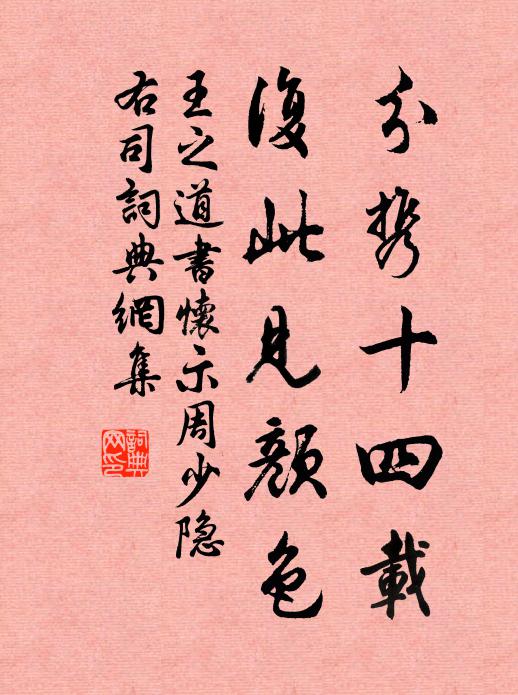 分携十四載
復此見顏色
王之道書懷示周少隐
右司詞典網集
詞典
网印